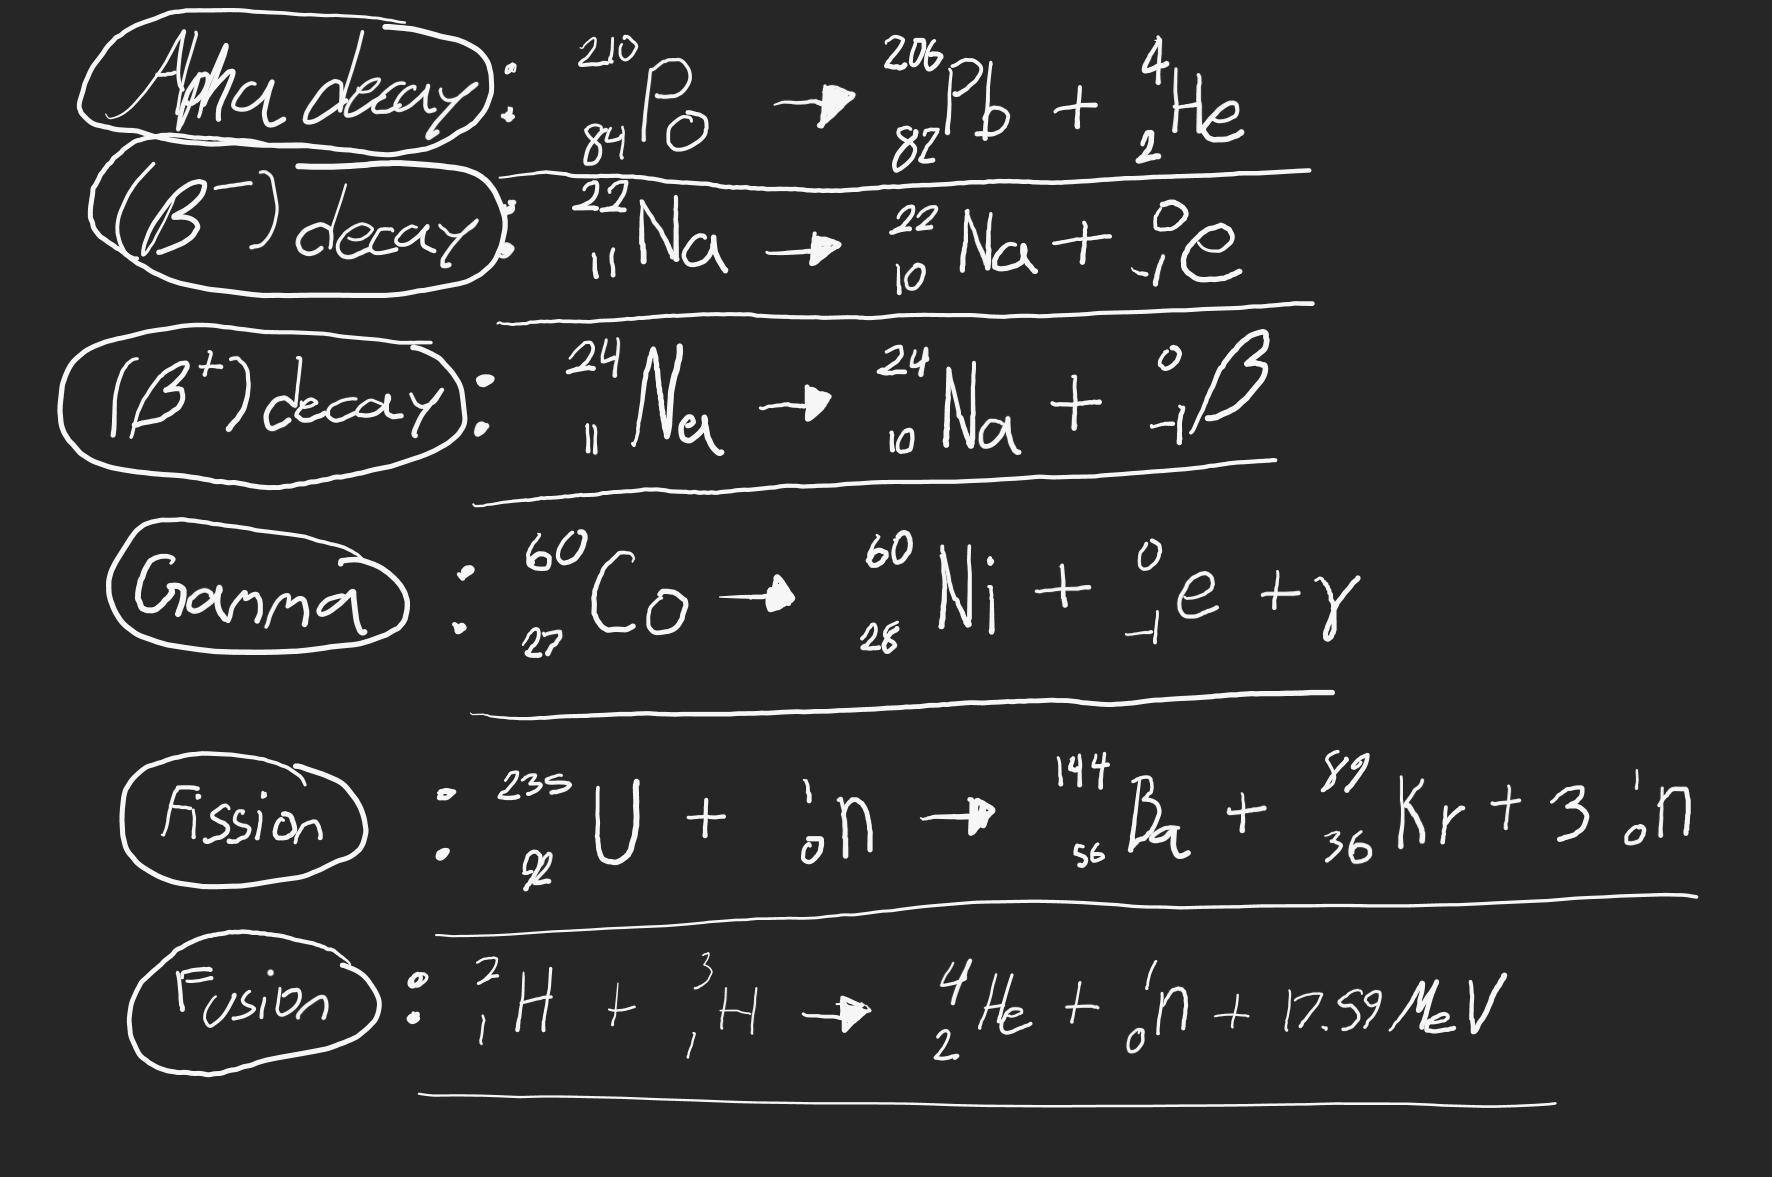 Alpha decay : ²¹⁰₈₄Po → ²⁰⁶₈₂Pb + ⁴₂He
(β⁻) decay : ²²₁₁Na → ²²₁₀Na + ⁰₋₁e
(β⁺) decay : ²⁴₁₁Na → ²⁴₁₀Na + ⁰₋₁β
Gamma : ⁶⁰₂₇Co → ⁶⁰₂₈Ni + ⁰₋₁e + γ
Fission : ²³⁵₉₂U + ¹₀n → ¹⁴⁴₅₆Ba + ⁸⁹₃₆Kr + 3 ¹₀n
Fusion : ²₁H + ³₁H → ⁴₂He + ¹₀n + 17.59 MeV